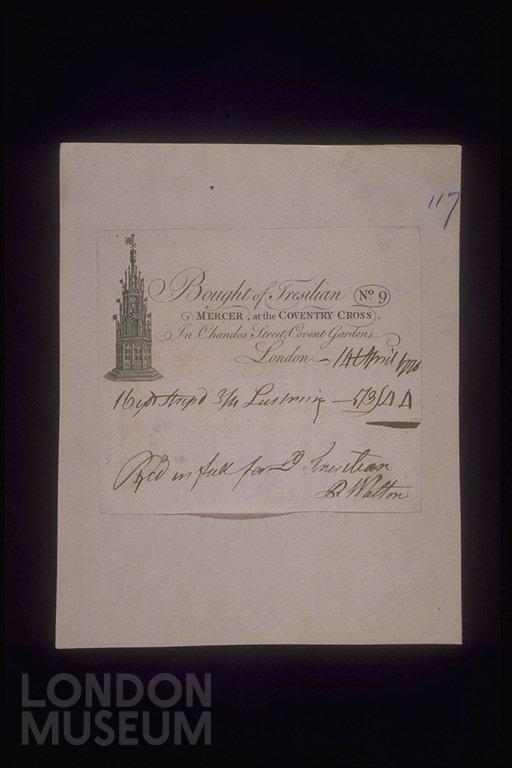 117
Bought of Tresilian No. 9
MERCER, at the COVENTRY CROSS,
In Chandos Street, Covent Garden,
London 14 April
16 yds Strip'd 3/4 Lustring
Rec'd in full for Tresilian
R Walton
LONDON
MUSEUM